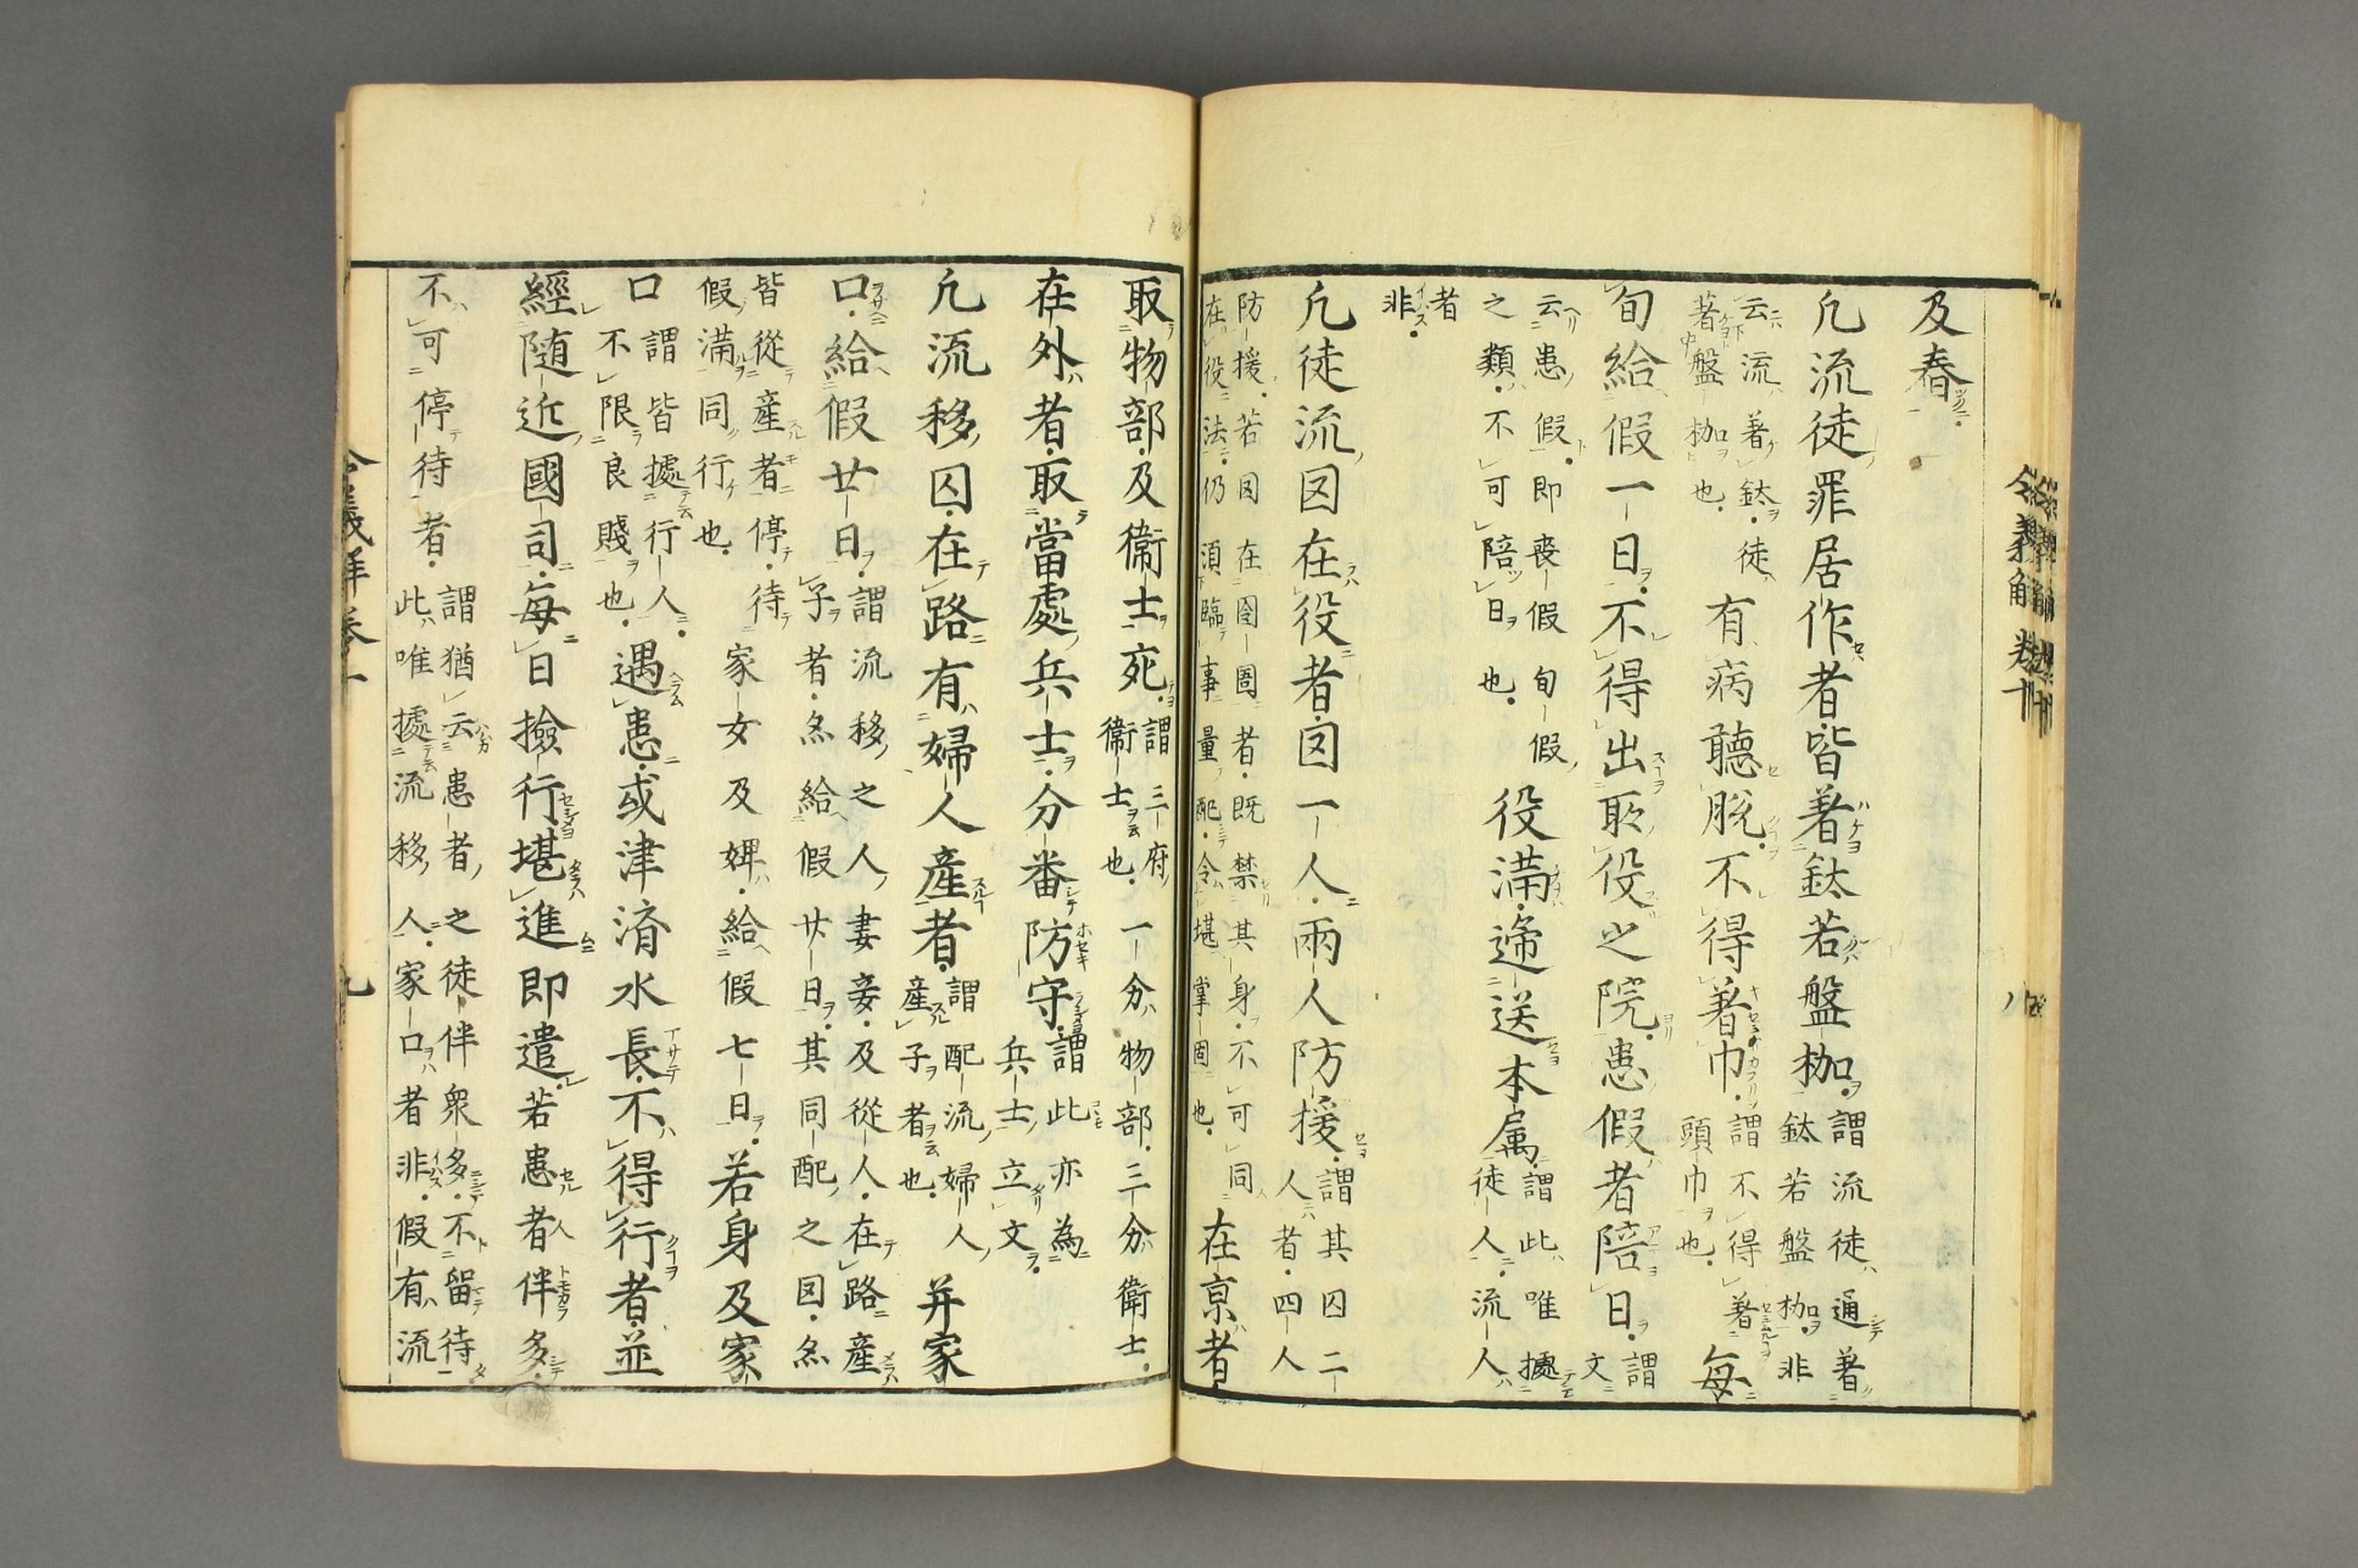 及舂
凢流徒罪居作者皆著鈦若盤枷謂流徒通著
鈦若盤枷非
云流著鈦徒
著盤枷也有病聽脱不得著巾謂不得著
頭巾也每
旬給假一日不得出所役之院患假者陪日謂
文
云患假即喪假旬假
之類不可陪日也役満遞送本属謂此唯據
徒人流人
者
非
凢徒流囚在役者囚一人兩人防援謂其囚二
人者四人
防援若囚在囹圄者既禁其身不可同
在役法仍須臨事量配令堪掌固也在京者
取物部及衞士死謂三府
衞士也一分物部三分衞士
在外者取當處兵士分番防守謂此亦為
兵士立文
凢流移囚在路有婦人産者謂配流婦人
産子者也并家
口給假廿日謂流移之人妻妾及從人在路産
子者亦給假廿日其同配之囚亦
皆從産者停待
假満同行也家女及婢給假七日若身及家
口謂皆據行人
不限良賤也遇患或津済水長不得行者並
經随近國司毎日撿行堪進即遣若患者伴多
不可停待者謂猶云患者之徒伴衆多不留待
此唯據流移人家口者非假有流
令義解卷十
八
九